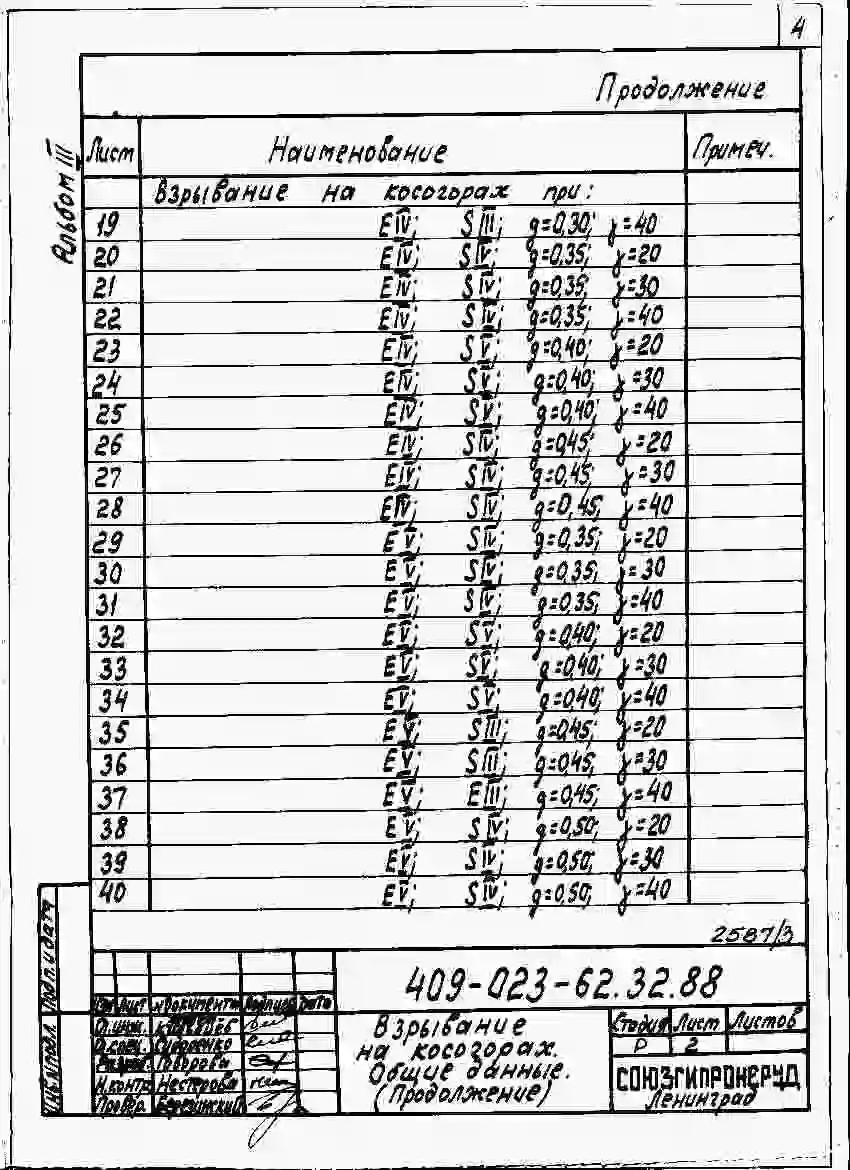 4
Продолжение
Альбом III
Лист Наименование Примеч.
Взрывание на косогорах при:
19 EIV; SIII; g=0,30; γ=40
20 EIV; SIV; g=0,35; γ=20
21 EIV; SIV; g=0,35; γ=30
22 EIV; SIV; g=0,35; γ=40
23 EIV; SV; g=0,40; γ=20
24 EIV; SV; g=0,40; γ=30
25 EIV; SV; g=0,40; γ=40
26 EIV; SIV; g=0,45; γ=20
27 EIV; SIV; g=0,45; γ=30
28 EIV; SIV; g=0,45; γ=40
29 EV; SIV; g=0,35; γ=20
30 EV; SIV; g=0,35; γ=30
31 EV; SIV; g=0,35; γ=40
32 EV; SV; g=0,40; γ=20
33 EV; SV; g=0,40; γ=30
34 EV; SV; g=0,40; γ=40
35 EV; SIII; g=0,45; γ=20
36 EV; SIII; g=0,45; γ=30
37 EV; EIII; g=0,45; γ=40
38 EV; SIV; g=0,50; γ=20
39 EV; SIV; g=0,50; γ=30
40 EV; SIV; g=0,50; γ=40
2587/3
Подп. и дата
Инв.№подл.
409-023-62.32.88
Изм Лист №документа Подпись Дата
Гл.инж.
Гл.спец. Сидоренко
Разраб. Говорова
Н.контр. Нестерова
Провер. Березинский
Взрывание
на косогорах.
Общие данные.
(Продолжение)
Стадия Лист Листов
Р 2
СОЮЗГИПРОНЕРУД
Ленинград